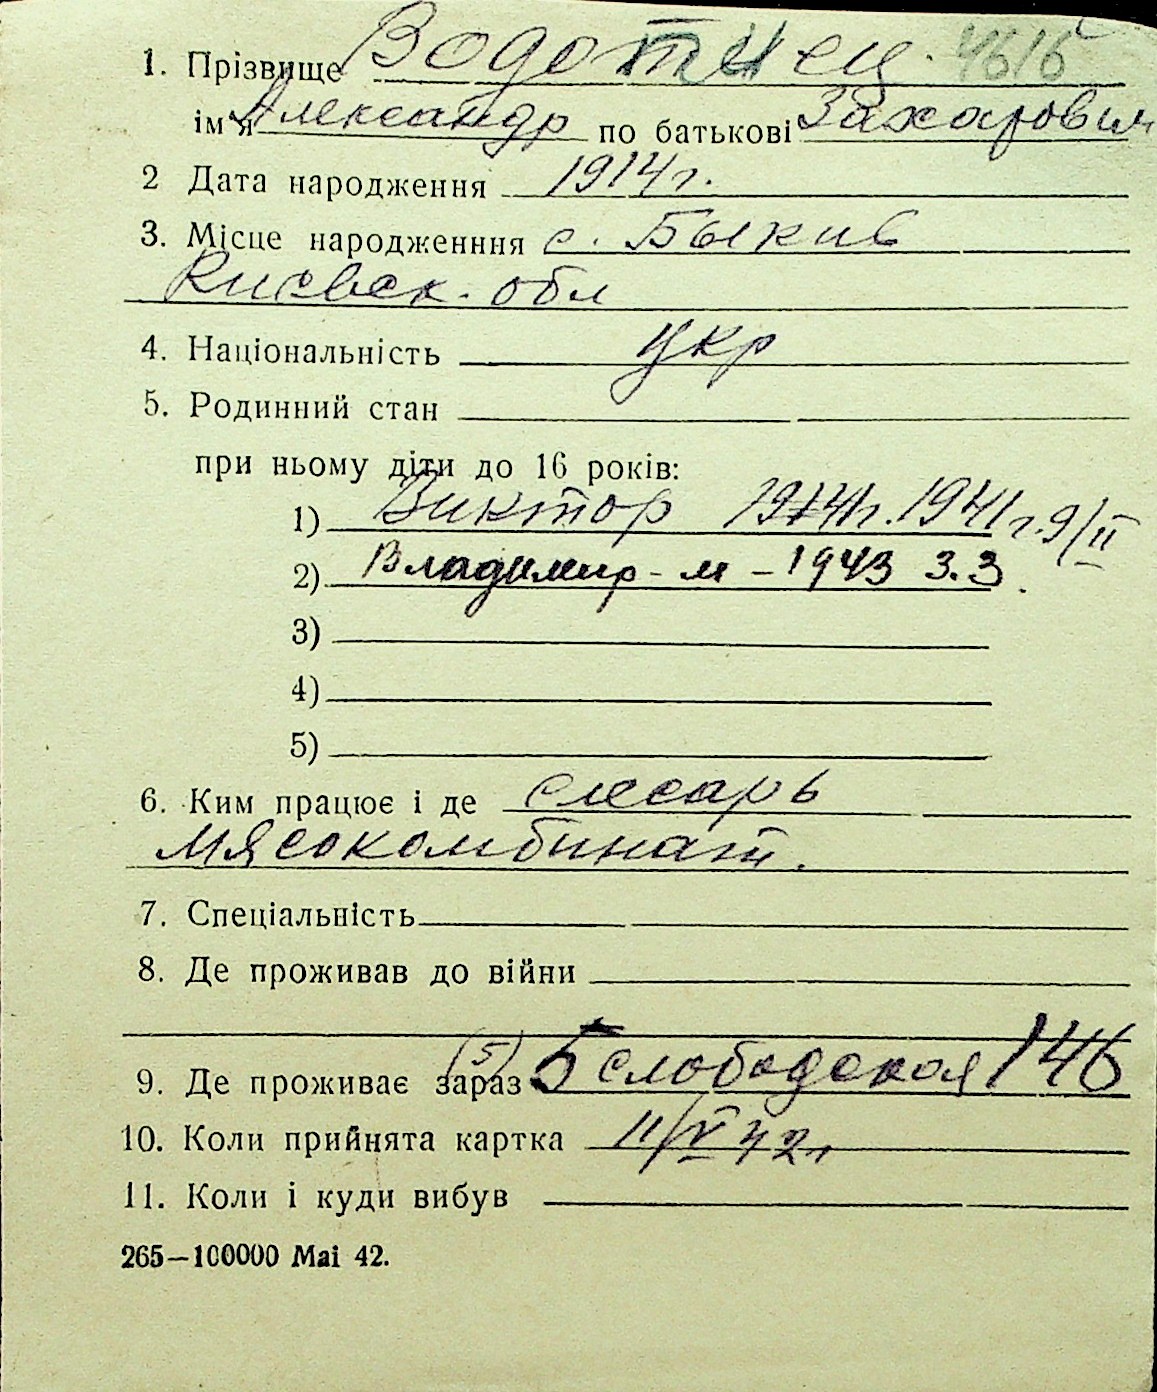 1. Прізвище Водотиец. 4616
ім'я Александр по батькові Захарович
2 Дата народження 1914 г.
3. Місце народженння с. Быкив
Киевск. обл
4. Національність укр
5. Родинний стан
при ньому діти до 16 років:
1) Виктор 1941 г. 9/II
2) Владимир - м - 1943 3.3.
3)
4)
5)
6. Ким працює і де слесарь
мясокомбинат.
7. Спеціальність
8. Де проживав до війни
9. Де проживає зараз (5) Б слободская 146
10. Коли прийнята картка 11/V 42 г
11. Коли і куди вибув
265—100000 Маі 42.